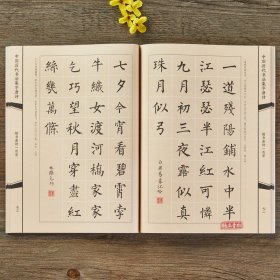 一道殘陽鋪水中半
江瑟瑟半江紅可憐
九月初三夜露似真
珠月似弓
白居易暮江吟
七夕今宵看碧霄牽
牛織女渡河橋家家
乞巧望秋月穿盡紅
絲幾萬條
林傑乞巧